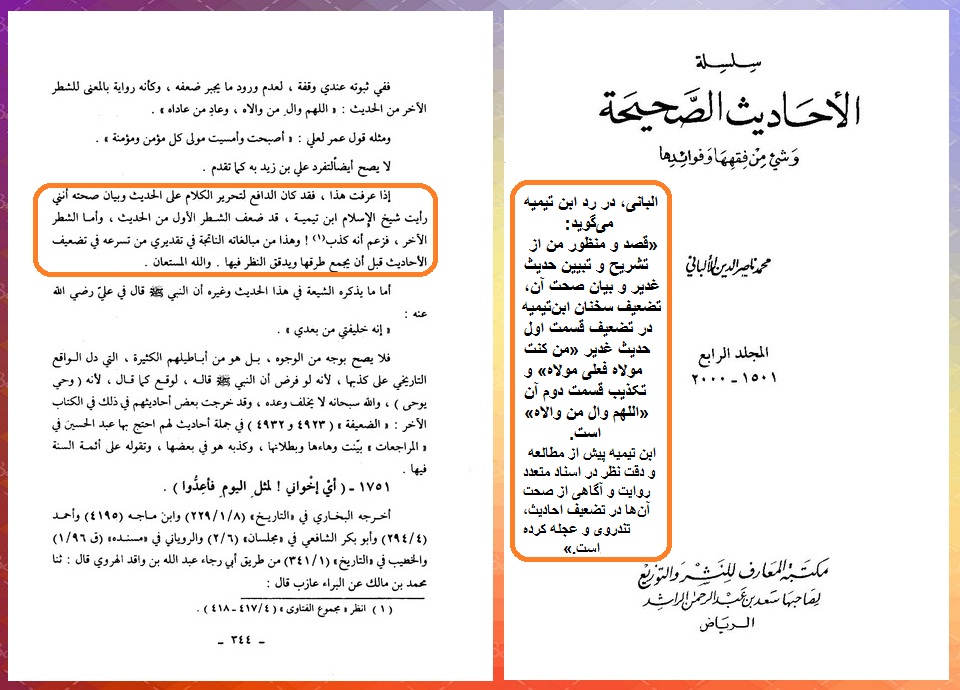 سلسلة
الأحاديث الصَّحيحة
وَشيءٌ مِنْ فِقهِهَا وَفوَائِدِهَا
البانی، در رد ابن تیمیه
می‌گوید:
«قصد و منظور من از
تشریح و تبیین حدیث
غدیر و بیان صحت آن،
تضعیف سخنان ابن‌تیمیه
در تضعیف قسمت اول
حدیث غدیر «من کنت
مولاه فعلی مولاه» و
تکذیب قسمت دوم آن
«اللهم وال من والاه»
است.
ابن تیمیه پیش از مطالعه
و دقت نظر در اسناد متعدد
روایت و آگاهی از صحت
آن‌ها در تضعیف احادیث،
تندروی و عجله کرده
است.»
محمد ناصر الدين الألباني
المجلد الرابع
١٥٠١ - ٢٠٠٠
مكتبة المعارف للنشر والتوزيع
لصاحبها سعد بن عبد الرحمن الراشد
الرياض
ففي ثبوته عندي وقفة ، لعدم ورود ما يجبر ضعفه ، وكأنه رواية بالمعنى للشطر
الآخر من الحديث : « اللهم وال من والاه ، وعادِ من عاداه » .
ومثله قول عمر لعلي : « أصبحت وأمسيت مولى كل مؤمن ومؤمنة » .
لا يصح أيضاً لتفرد علي بن زيد به كما تقدم .
إذا عرفت هذا ، فقد كان الدافع لتحرير الكلام على الحديث وبيان صحته أنني
رأيت شيخ الإسلام ابن تيمية ، قد ضعف الشطر الأول من الحديث ، وأما الشطر
الآخر ، فزعم أنه كذب(١) ! وهذا من مبالغاته الناتجة في تقديري من تسرعه في تضعيف
الأحاديث قبل أن يجمع طرقها ويدقق النظر فيها . والله المستعان .
أما ما يذكره الشيعة في هذا الحديث وغيره أن النبي ﷺ قال في عليّ رضي الله
عنه :
« إنه خليفتي من بعدي » .
فلا يصح بوجه من الوجوه ، بـل هو من أباطيلهم الكثيرة ، التي دل الـواقع
التاريخي على كذبها ، لأنه لو فرض أن النبي ﷺ قاله ، لوقع كما قال ، لأنه ( وحي
يوحى ) ، والله سبحانه لا يخلف وعده ، وقد خرجت بعض أحاديثهم في ذلك في الكتاب
الآخر : « الضعيفة » ( ٤٩٢٣ و ٤٩٣٢ ) في جملة أحاديث لهم احتج بها عبد الحسين في
« المراجعات » بيّنت وهاءها وبطلانها ، وكذبه هو في بعضها ، وتقوله على أئمة السنة
فيها .
١٧٥١ - ( أيْ إخْواني ! لمثلِ اليومِ فأَعِدُّوا ) .
أخـرجه البخـاري في «التاريخ» (٢٢٩/١/٨) وابن مـاجـه (٤١٩٥) وأحمـد
(٢٩٤/٤) وأبو بكر الشافعي في «مجلسان» (٢/٦) والروياني في «مسنـده» (ق ١/٩٦)
والخطيب في «التاريخ» (٣٤١/١) من طريق أبي رجاء عبد الله بن واقد الهروي قال : ثنا
محمد بن مالك عن البراء عازب قال :
( ١ ) انظر « مجموع الفتاوى » (٤١٧/٤ - ٤١٨ ) .
- ٣٤٤ -